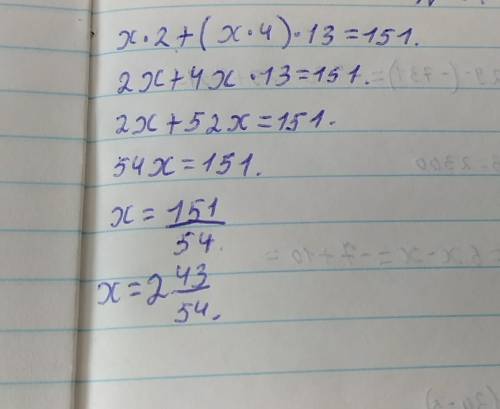 x·2+(x·4)·13=151.
2x+4x·13=151.
2x+52x=151.
54x=151.
x=151/54.
x=2 43/54.